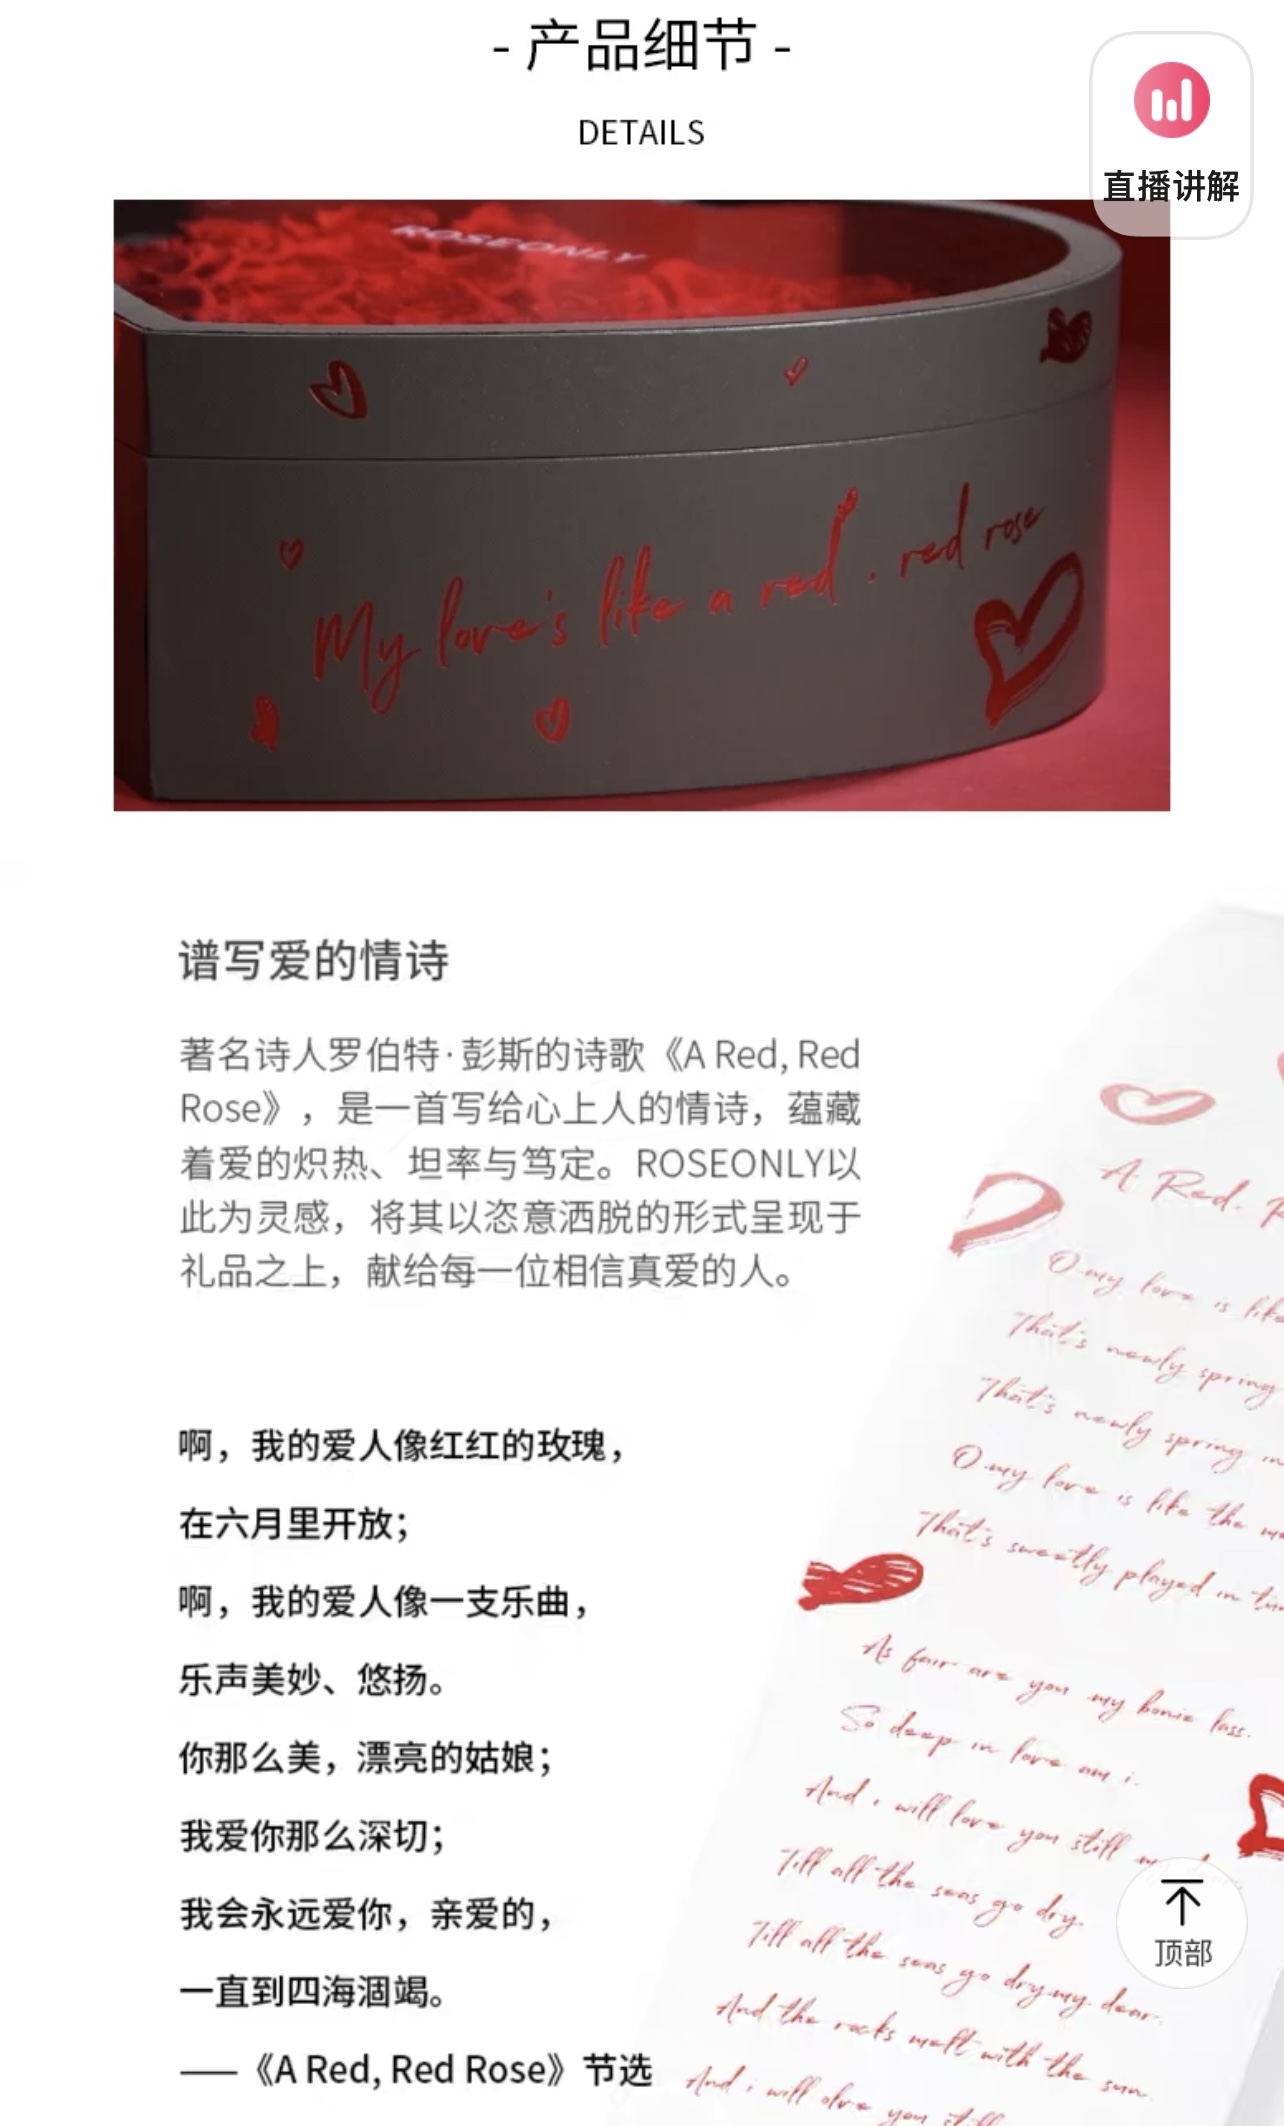 - 产品细节 -
DETAILS
直播讲解
ROSEONLY
My love's like a red. red rose
谱写爱的情诗
著名诗人罗伯特·彭斯的诗歌《A Red, Red
Rose》，是一首写给心上人的情诗，蕴藏
着爱的炽热、坦率与笃定。ROSEONLY以
此为灵感，将其以恣意洒脱的形式呈现于
礼品之上，献给每一位相信真爱的人。
啊，我的爱人像红红的玫瑰，
在六月里开放；
啊，我的爱人像一支乐曲，
乐声美妙、悠扬。
你那么美，漂亮的姑娘；
我爱你那么深切；
我会永远爱你，亲爱的，
一直到四海涸竭。
——《A Red, Red Rose》节选
A Red. R
O my love is like
That's newly spring
That's newly spring in
O my love is like the me
That's sweetly played in tun
As fair are you my bonie lass.
So deep in love am i.
And i will love you still my dear.
Till all the seas go dry.
Till all the seas go dry my dear.
And the rocks melt with the sun.
And i will olve you still
顶部